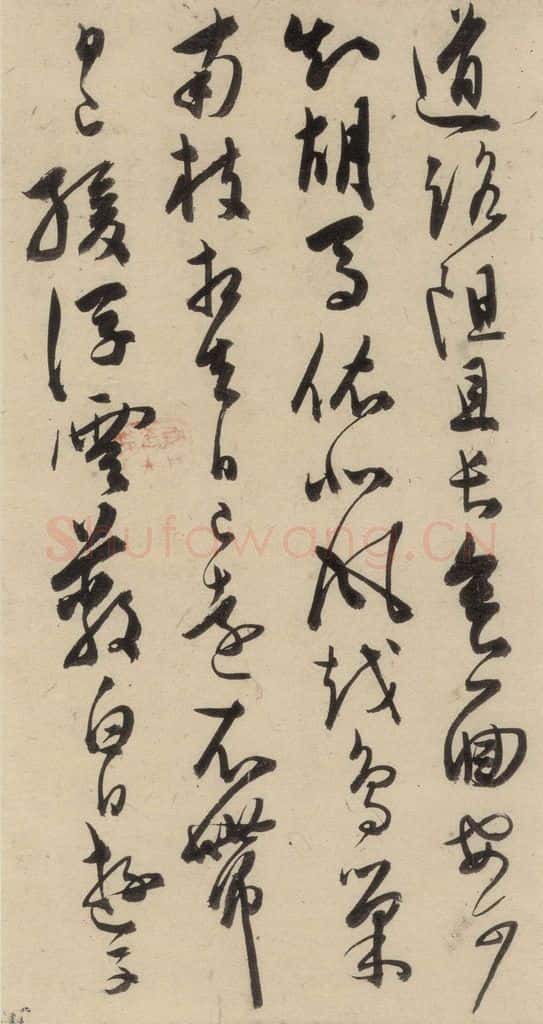 道路阻且長會面安可
知胡馬依北風越鳥巢
南枝相去日已遠衣帶
日已緩浮雲蔽白日遊子
Shufawang.CN